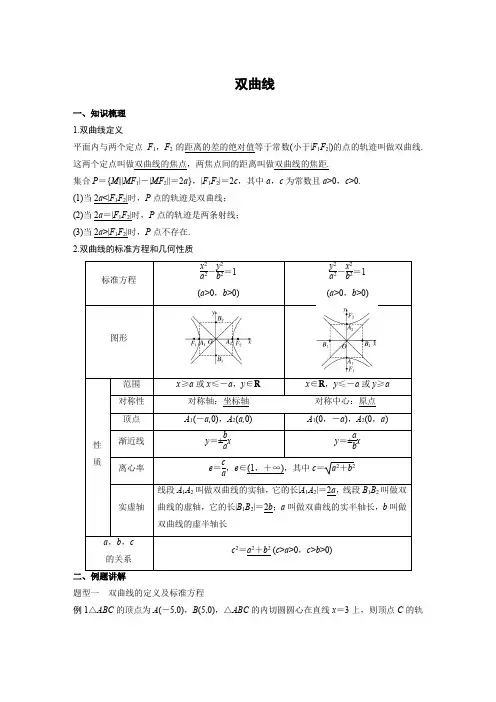 双曲线
一、知识梳理
1.双曲线定义
平面内与两个定点 F₁，F₂ 的距离的差的绝对值等于常数(小于|F₁F₂|)的点的轨迹叫做双曲线.
这两个定点叫做双曲线的焦点，两焦点间的距离叫做双曲线的焦距.
集合 P＝{M|||MF₁|－|MF₂||＝2a}，|F₁F₂|＝2c，其中 a，c 为常数且 a>0，c>0.
(1)当 2a<|F₁F₂|时，P 点的轨迹是双曲线；
(2)当 2a＝|F₁F₂|时，P 点的轨迹是两条射线；
(3)当 2a>|F₁F₂|时，P 点不存在.
2.双曲线的标准方程和几何性质
标准方程
x²/a²－y²/b²＝1
(a>0，b>0)
y²/a²－x²/b²＝1
(a>0，b>0)
图形
性质
范围
x≥a 或 x≤－a，y∈R
x∈R，y≤－a 或 y≥a
对称性
对称轴：坐标轴
对称中心：原点
顶点
A₁(－a,0)，A₂(a,0)
A₁(0，－a)，A₂(0，a)
渐近线
y＝±(b/a)x
y＝±(a/b)x
离心率
e＝c/a，e∈(1，＋∞)，其中 c＝√(a²＋b²)
实虚轴
线段 A₁A₂ 叫做双曲线的实轴，它的长|A₁A₂|＝2a，线段 B₁B₂ 叫做双
曲线的虚轴，它的长|B₁B₂|＝2b；a 叫做双曲线的实半轴长，b 叫做
双曲线的虚半轴长
a，b，c
的关系
c²＝a²＋b² (c>a>0，c>b>0)
二、例题讲解
题型一 双曲线的定义及标准方程
例 1△ABC 的顶点为 A(－5,0)，B(5,0)，△ABC 的内切圆圆心在直线 x＝3 上，则顶点 C 的轨